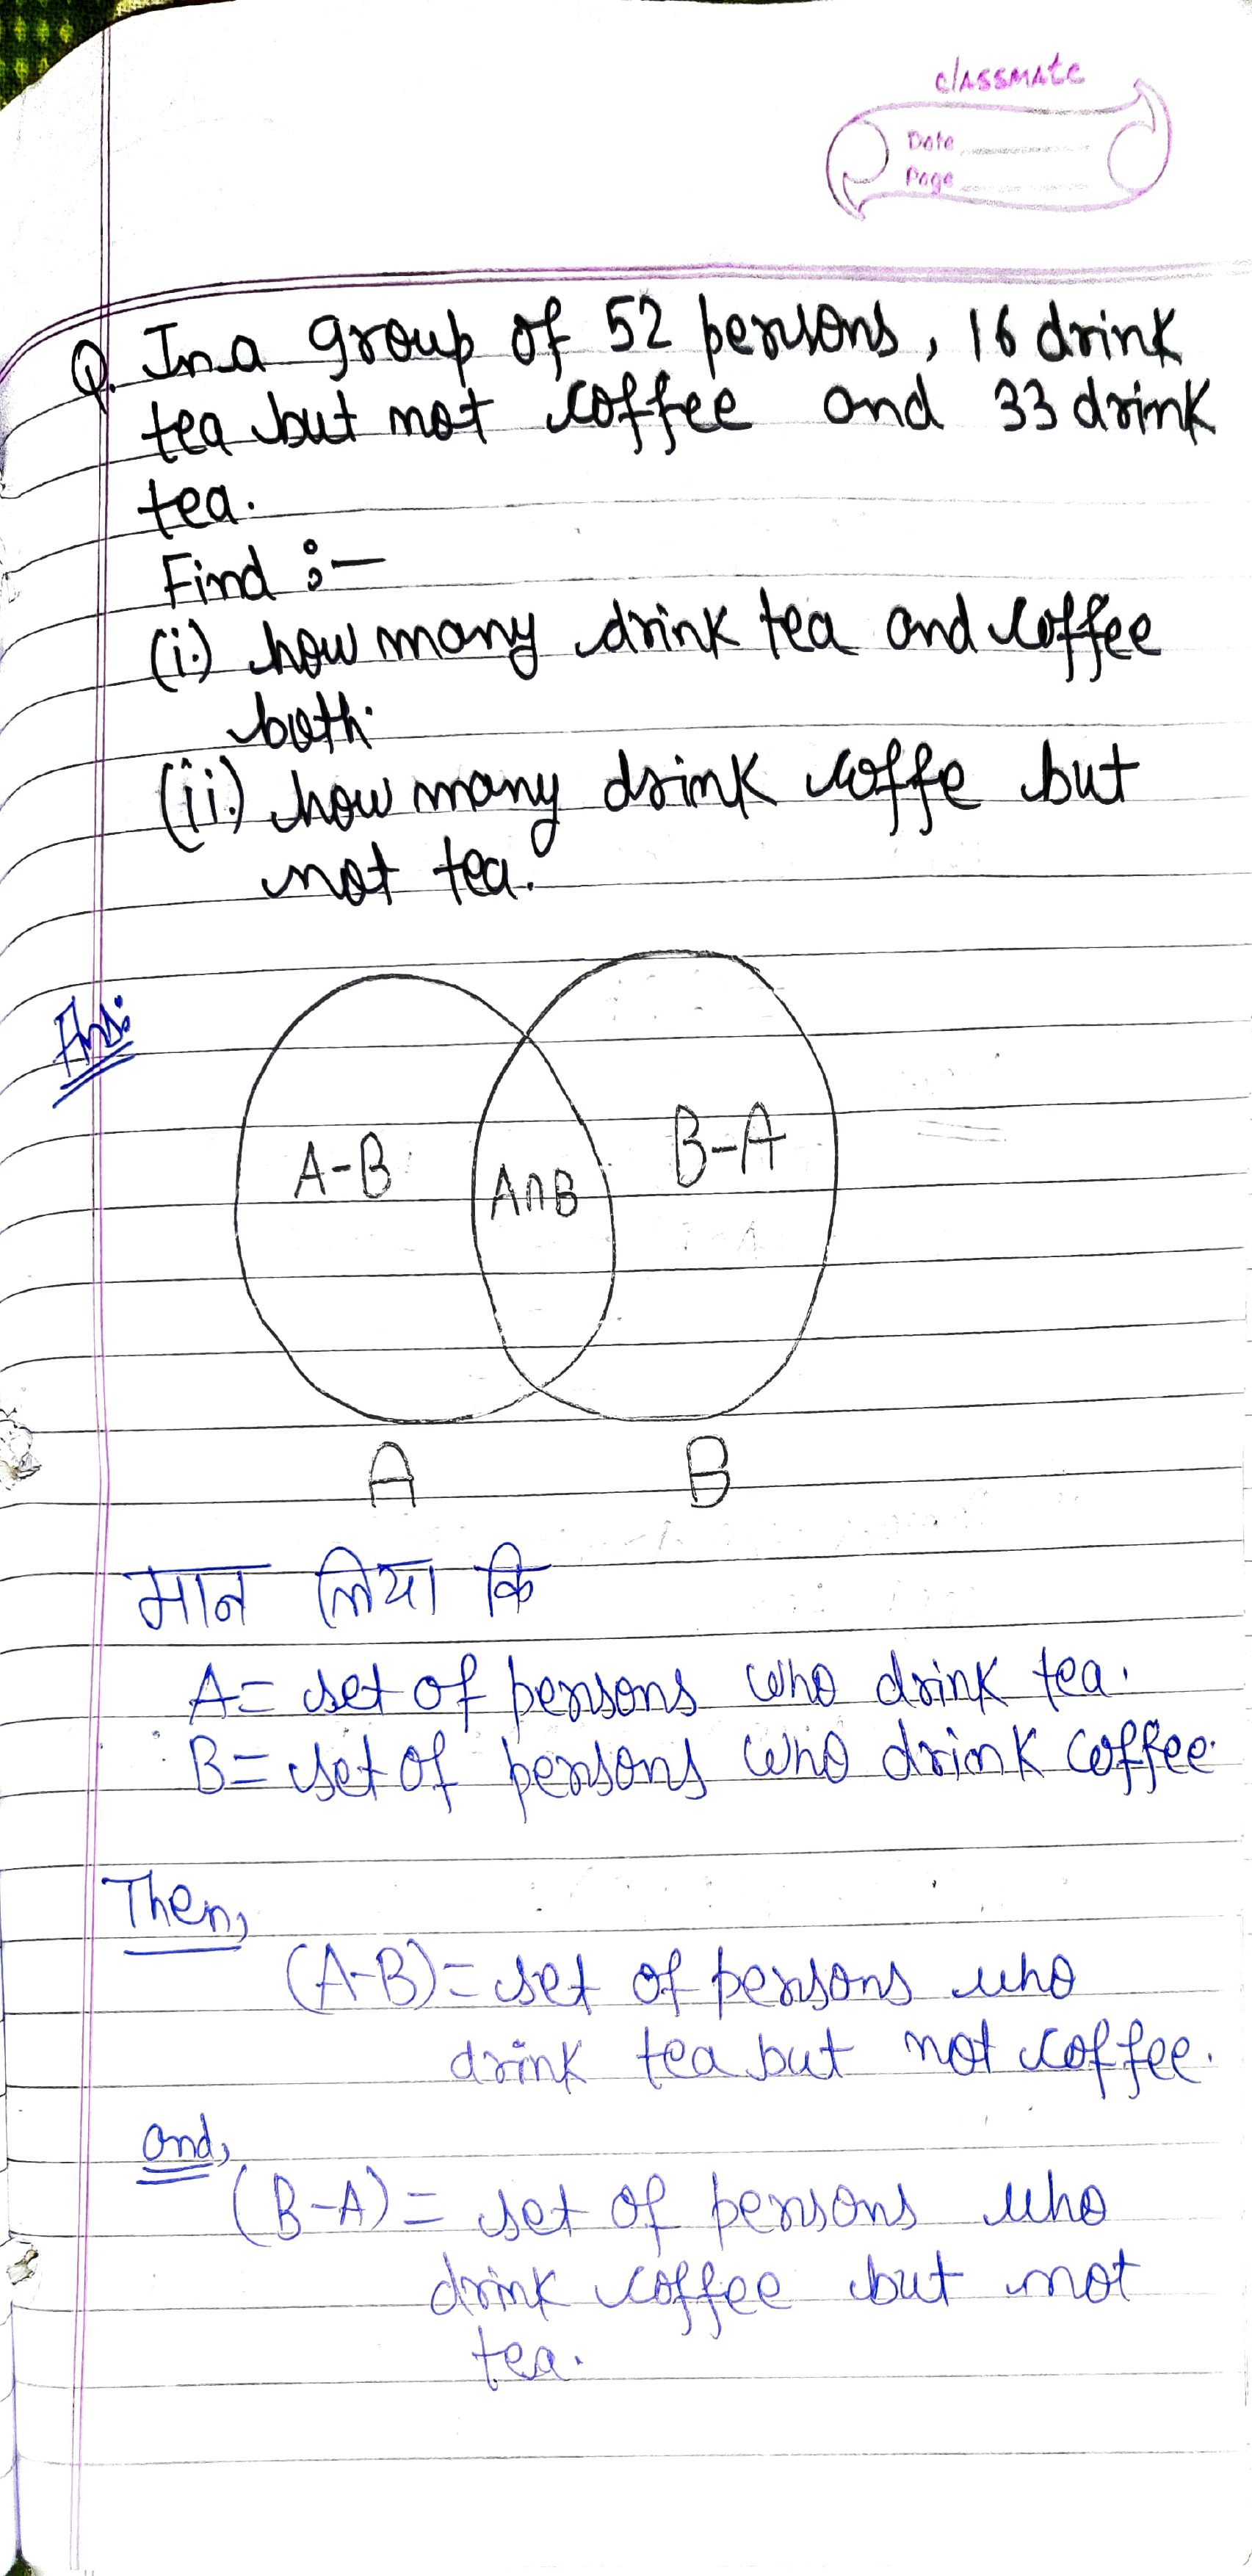 classmate
Date
Page
Q. In a group of 52 persons, 16 drink
tea but not coffee and 33 drink
tea.
Find :-
(i.) how many drink tea and coffee
both.
(ii.) how many drink coffe but
not tea.
Ans:
A-B A∩B B-A
A B
मान लिया कि
A= set of persons who drink tea.
B= set of persons who drink coffee.
Then,
(A-B)= set of persons who
drink tea but not coffee.
and,
(B-A)= set of persons who
drink coffee but not
tea.